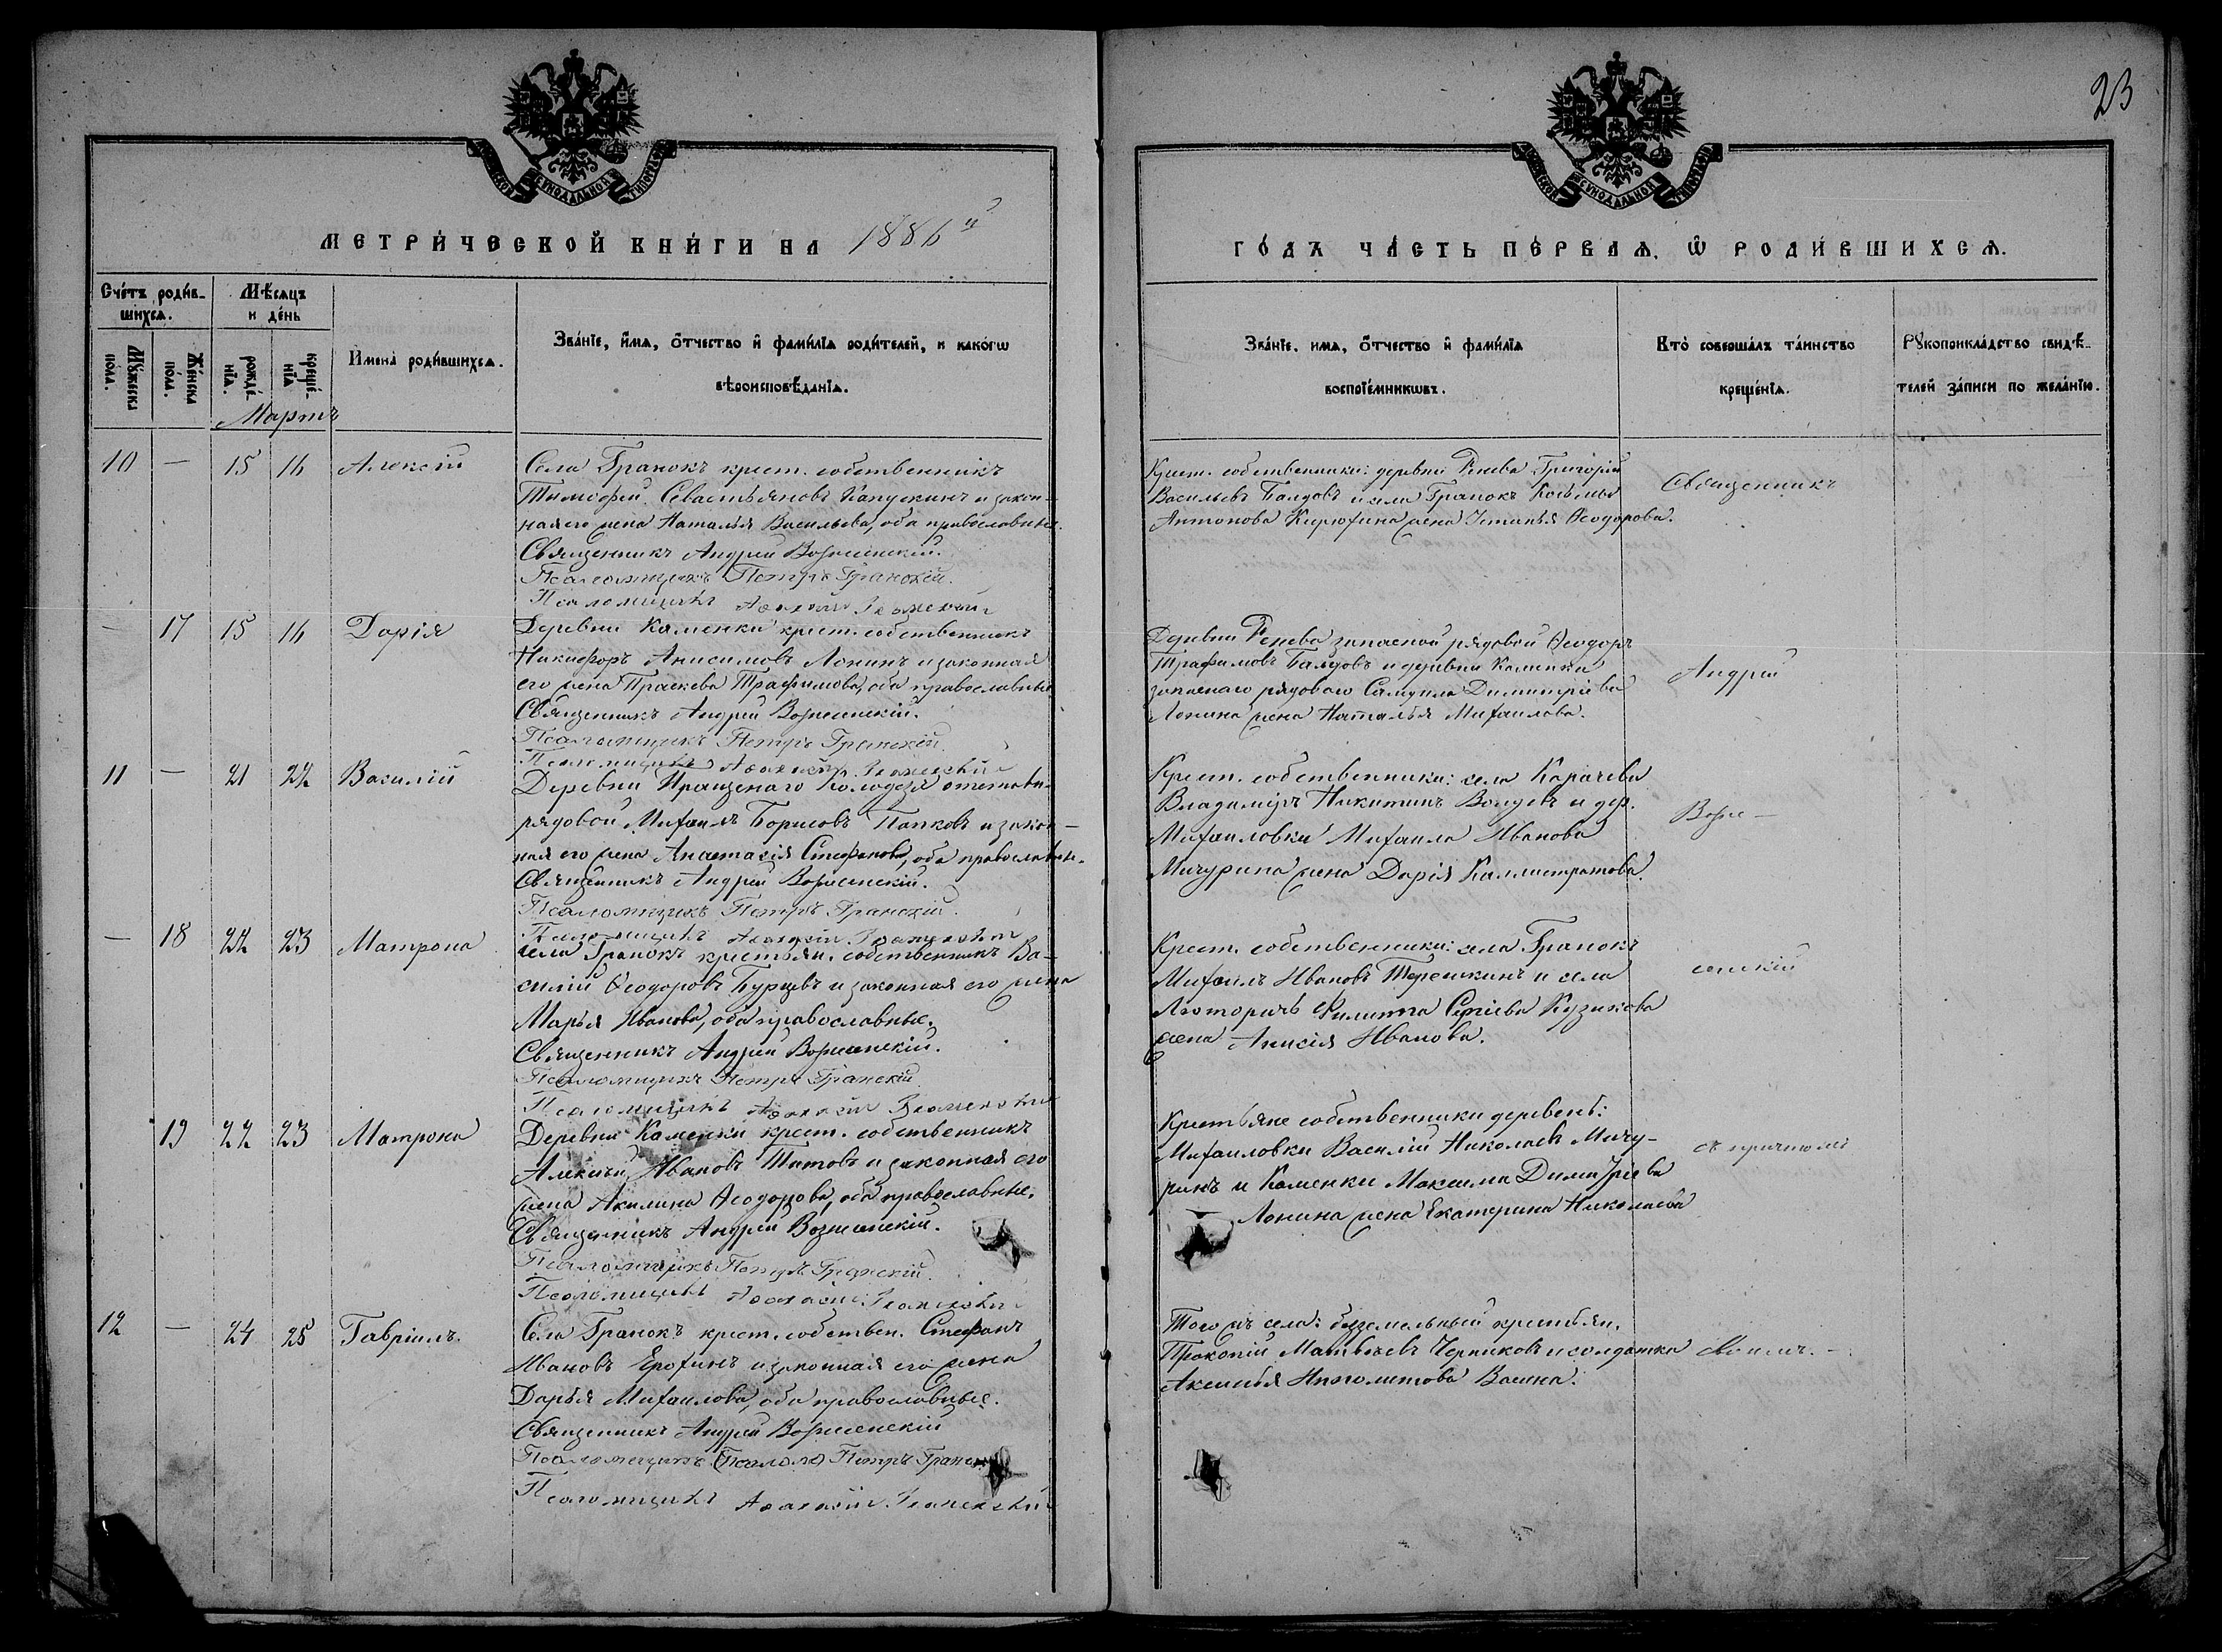 23
МОСКОВСКОЙ СѴНОДАЛЬНОЙ ТИПОГРАФІИ
МЕТРИ́ЧЕСКОЙ КНИ́ГИ НА 1886й
ГО́ДЪ ЧА́СТЬ ПЕ́РВАЯ, Ѿ РОДИ́ВШИХСЯ.
Сче́тъ роди́в-
шихся.
Мѣ́сяцъ
и де́нь
Мꙋ́жеска
по́ла.
Же́нска
по́ла.
рожде́-
нїа.
креще́-
нїа.
Имена̀ роди́вшихся.
Зва́нїе, и́мя, ѻ҆́тчество и҆ фами́лїа роди́телей, и како́гѡ
вѣроисповѣ́данїа.
Зва́нїе, имя, ѻ҆́тчество и҆ фами́лїа
воспрїе́мникѡвъ.
Кто̀ соверша́лъ та́инство
креще́нїа.
Рꙋкоприкла́дство свидѣ́-
телей за́писи по жела́нїю.
Мартъ
10 — 15 16 Алексій
Села Гранокъ крест. собственникъ
Тимофей Севастьяновъ Капускинъ и закон-
ная его жена Наталья Васильева, оба православные.
Священникъ Андрей Вознесенскій.
Псаломщикъ Петръ Гранскій.
Псаломщикъ
Крест. собственники: деревни Ренева Григорій
Васильевъ Балдовъ и села Гранокъ Косьмы
Антонова Кирюхина жена Устинья Ѳеодорова.
Священникъ
— 17 15 16 Дарія
Деревни Каменки крест. собственникъ
Никифоръ Анисимовъ Лонинъ и законная
его жена Праскева Трафимова, оба православные
Священникъ Андрей Вознесенскій.
Псаломщикъ Петръ Гранскій.
Псаломщикъ
Деревни Ренева запасной рядовой Ѳеодоръ
Трафимовъ Балдовъ и деревни Каменки
запаснаго рядоваго Самуила Димитріева
Лонина жена Наталья Михаилова.
Андрей
11 — 21 22 Василій
Деревни Прощенаго Колодезя отставн.
рядовой Михаилъ Борисовъ Папковъ и закон-
ная его жена Анастасія Стефанова, оба православные.
Священникъ Андрей Вознесенскій.
Псаломщикъ Петръ Гранскій.
Псаломщикъ
Крест. собственники: села Карачева
Владиміръ Никитинъ и дер.
Михаиловки Михаила Иванова
Мичурина жена Дарія Каллистратова.
Возне-
— 18 22 23 Матрона
села Гранокъ крестьян. собственникъ Ва-
силій Ѳеодоровъ Бурцевъ и законная его жена
Марья Иванова, оба православные.
Священникъ Андрей Вознесенскій.
Псаломщикъ Петръ Гранскій.
Псаломщикъ
Крест. собственники: села Гранокъ
Михаилъ Ивановъ Терешкинъ и села
Лютаричъ Филиппа Сергіева Кузикова
жена Анисія Иванова.
сенскій
19 22 23 Матрона
Деревни Каменки крест. собственникъ
Алексѣй Ивановъ Титовъ и законная его
жена Акилина Ѳеодорова, оба православные.
Священникъ Андрей Вознесенскій.
Псаломщикъ Петръ Гранскій.
Псаломщикъ
Крестьяне собственники деревень:
Михаиловки Василій Николаевъ Мичу-
ринъ и Каменки Максима Димитріева
Лонина жена Екатерина Николаева
съ причтомъ
12 — 24 25 Гавріилъ
Села Гранокъ крест. собствен. Стефанъ
Ивановъ Ерохинъ и законная его жена
Дарья Михаилова, оба православные.
Священникъ Андрей Вознесенскій
Псаломщикъ (Псалом) Петръ Гранскій
Псаломщикъ
Того жъ села: безземельный крестьян.
Прокопій Матвѣевъ Черниковъ и солдатка
Аксинья Ипполитова Васина.
своимъ.-